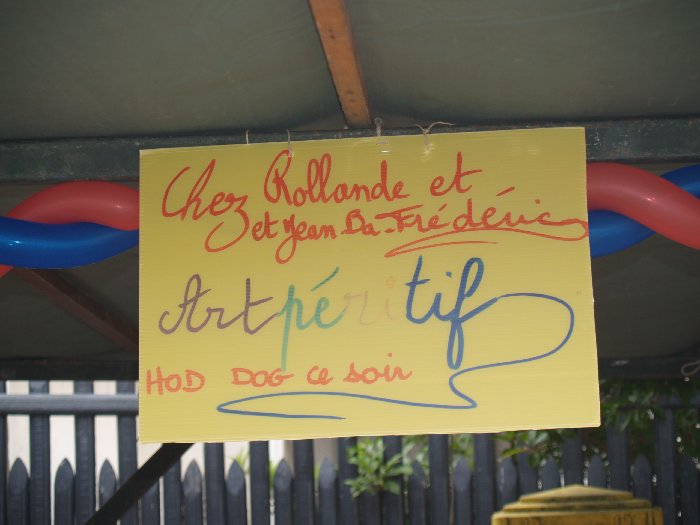 Chez Rollande et
et Jean-Ba-Frédéric
Artpéritif
HOD DOG ce soir